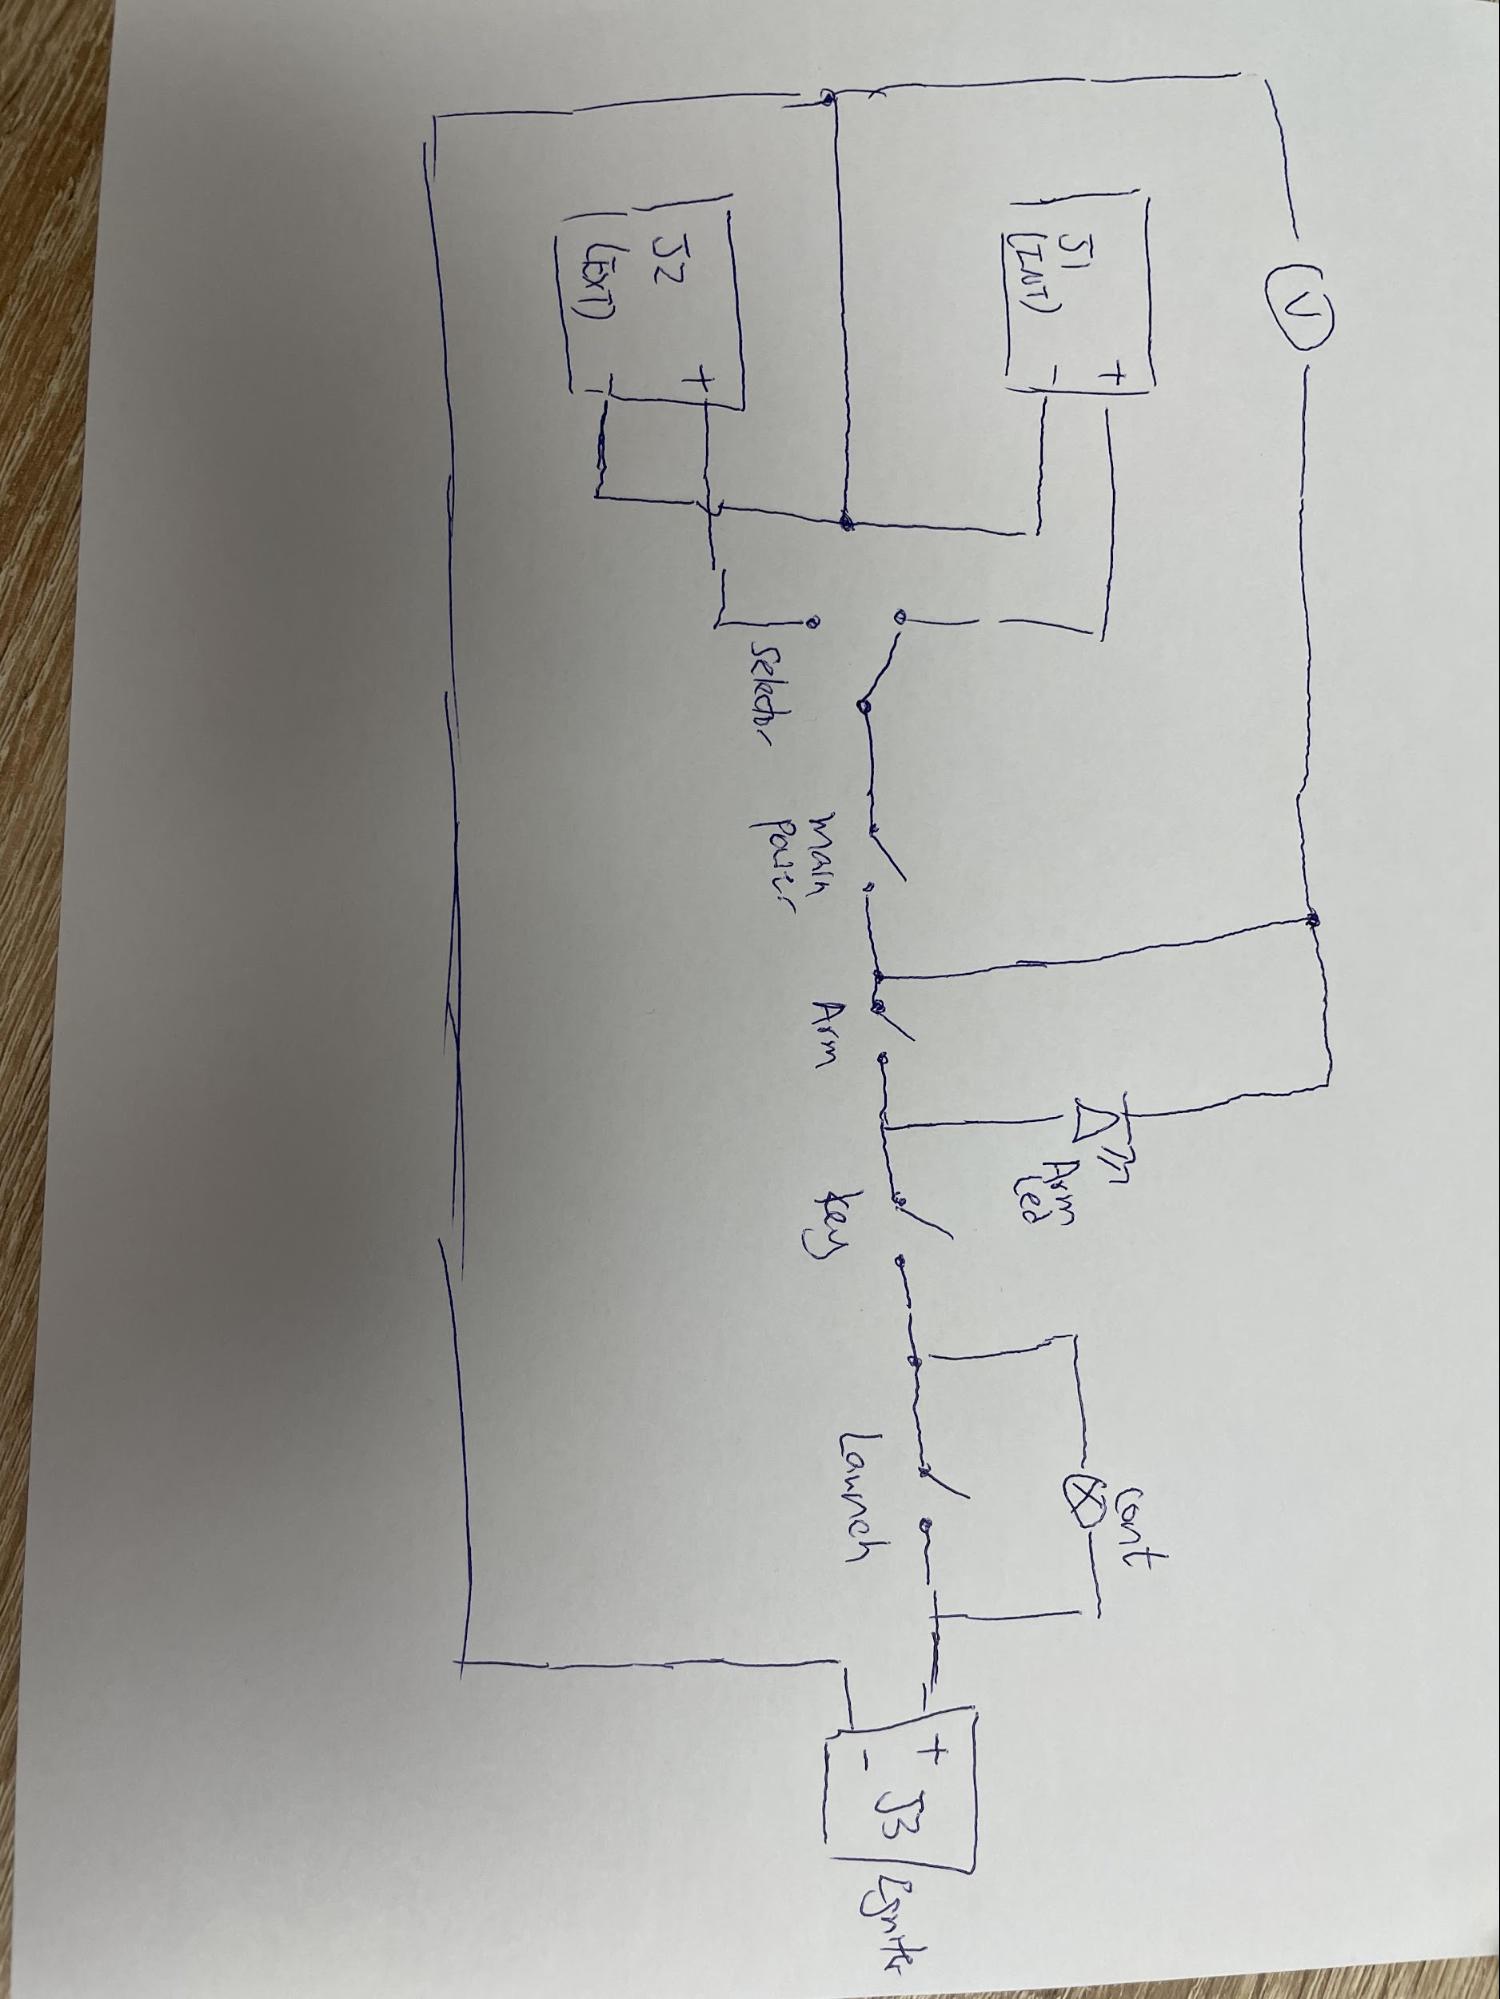 V
J1
(INT)
- +
J2
(EXT)
- +
Selector
Main
power
Arm
Arm
Led
Key
Cont
Launch
+
-
J3
Igniter